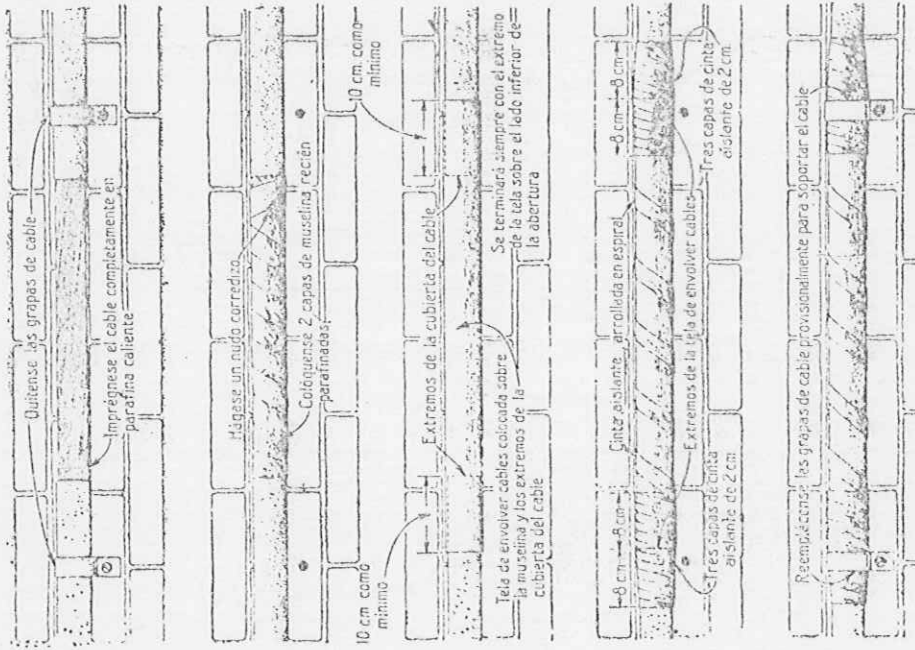 Quítense las grapas de cable
Imprégnese el cable completamente en
parafina caliente
Hágase un nudo corredizo
Colóquense 2 capas de muselina recién
parafinadas
10 cm como
mínimo
Extremos de la cubierta del cable
10 cm. como
mínimo
Tela de envolver cables colocada sobre
la muselina y los extremos de la
cubierta del cable
Se terminará siempre con el extremo
de la tela sobre el lado inferior de
la abertura
8 cm 8 cm
Cinta aislante arrollada en espiral
8 cm 8 cm
Tres capas de cinta
aislante de 2 cm
Extremos de la tela de envolver cables
Tres capas de cinta
aislante de 2 cm.
Reemplácense las grapas de cable provisionalmente para soportar el cable